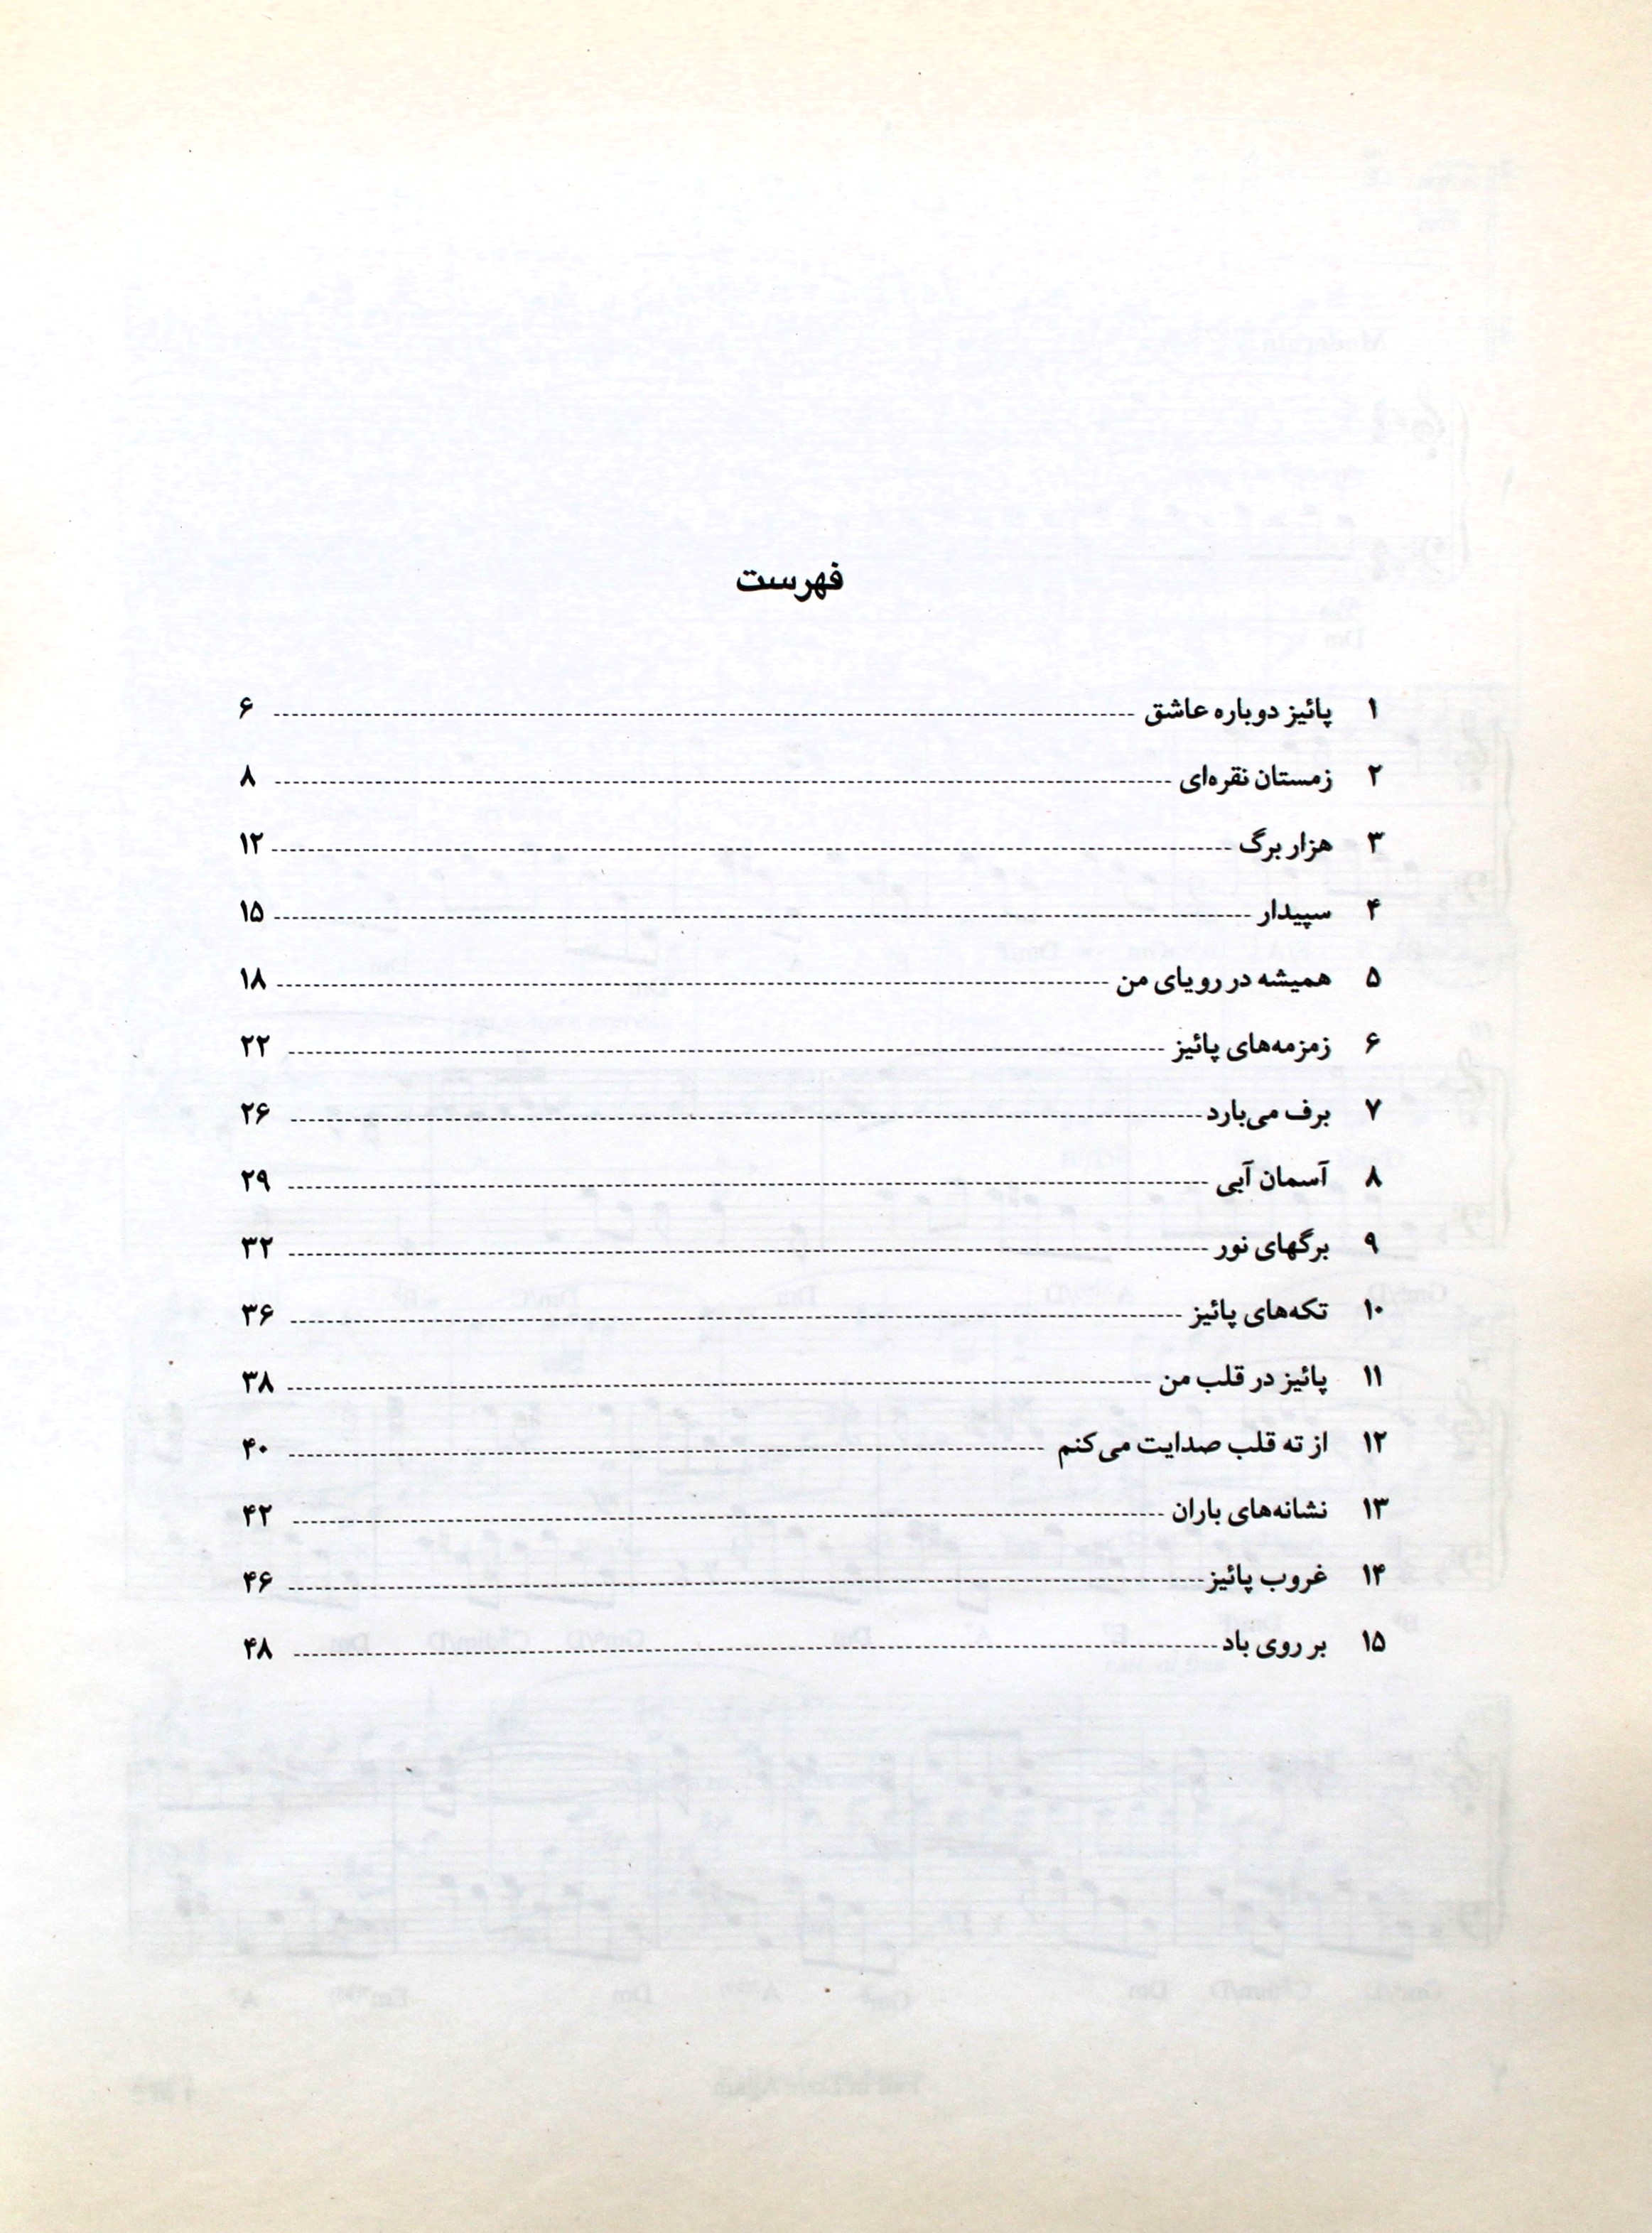 فهرست
۱ پائیز دوباره عاشق ۶
۲ زمستان نقره‌ای ۸
۳ هزار برگ ۱۲
۴ سپیدار ۱۵
۵ همیشه در رویای من ۱۸
۶ زمزمه‌های پائیز ۲۲
۷ برف می‌بارد ۲۶
۸ آسمان آبی ۲۹
۹ برگهای نور ۳۲
۱۰ تکه‌های پائیز ۳۶
۱۱ پائیز در قلب من ۳۸
۱۲ از ته قلب صدایت می‌کنم ۴۰
۱۳ نشانه‌های باران ۴۲
۱۴ غروب پائیز ۴۶
۱۵ بر روی باد ۴۸